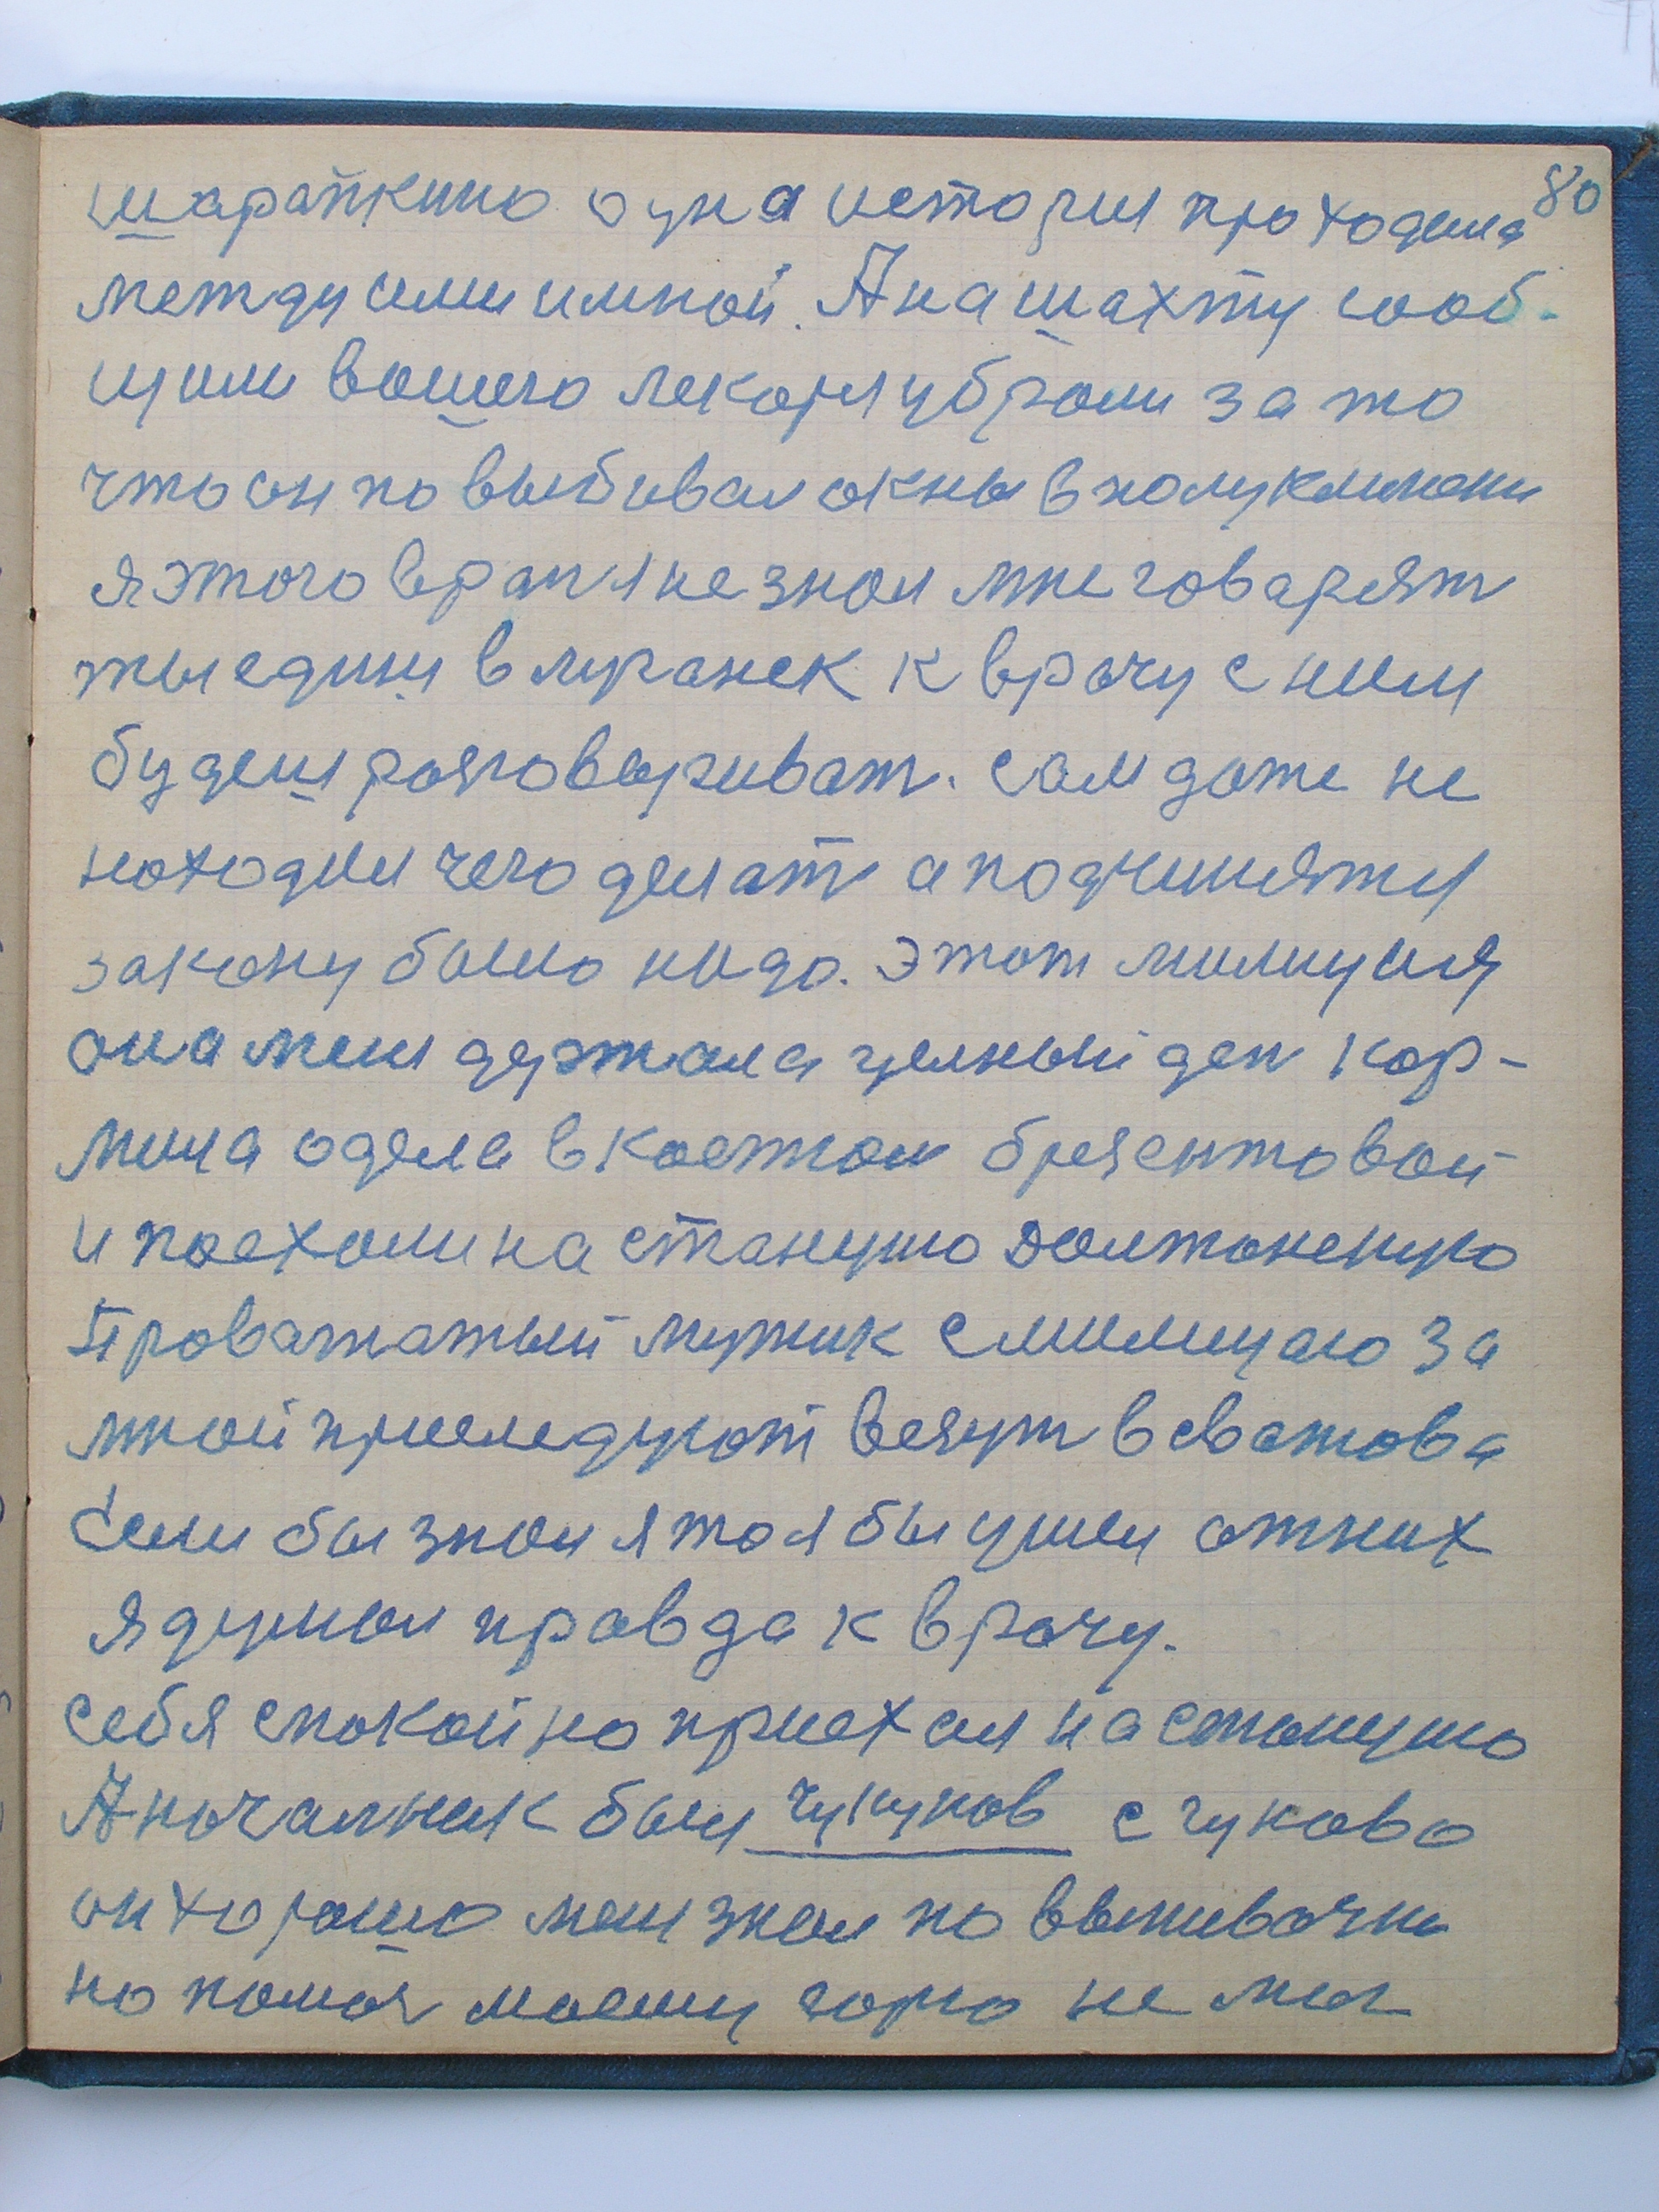 80
шарапкино одна история проходила
между ими имной. А на шахту сооб-
щили вашего лекаря убрали за то
что он по выбивал окны в полуклинети
я этого врачя не знал мне говарят
ты едиш в луганск к врачу с ним
будеш разговаривать. сам даже не
находил чего делат а подчинятся
закону было надо. этот милиция
она меня держала целный ден кор-
мила одела в костюм брезентовай
и поехали на станцую Долтонскую
Проважатый мужик с милицаю за
мной преследуют везут в сватова
Если бы знал я то я бы ушел отних
я думал правда к врачу.
себя спокойно приехал на станцую
А началник был чукунов с чуково
он хорошо меня знал по выживачки
но помоч маему горю не мог